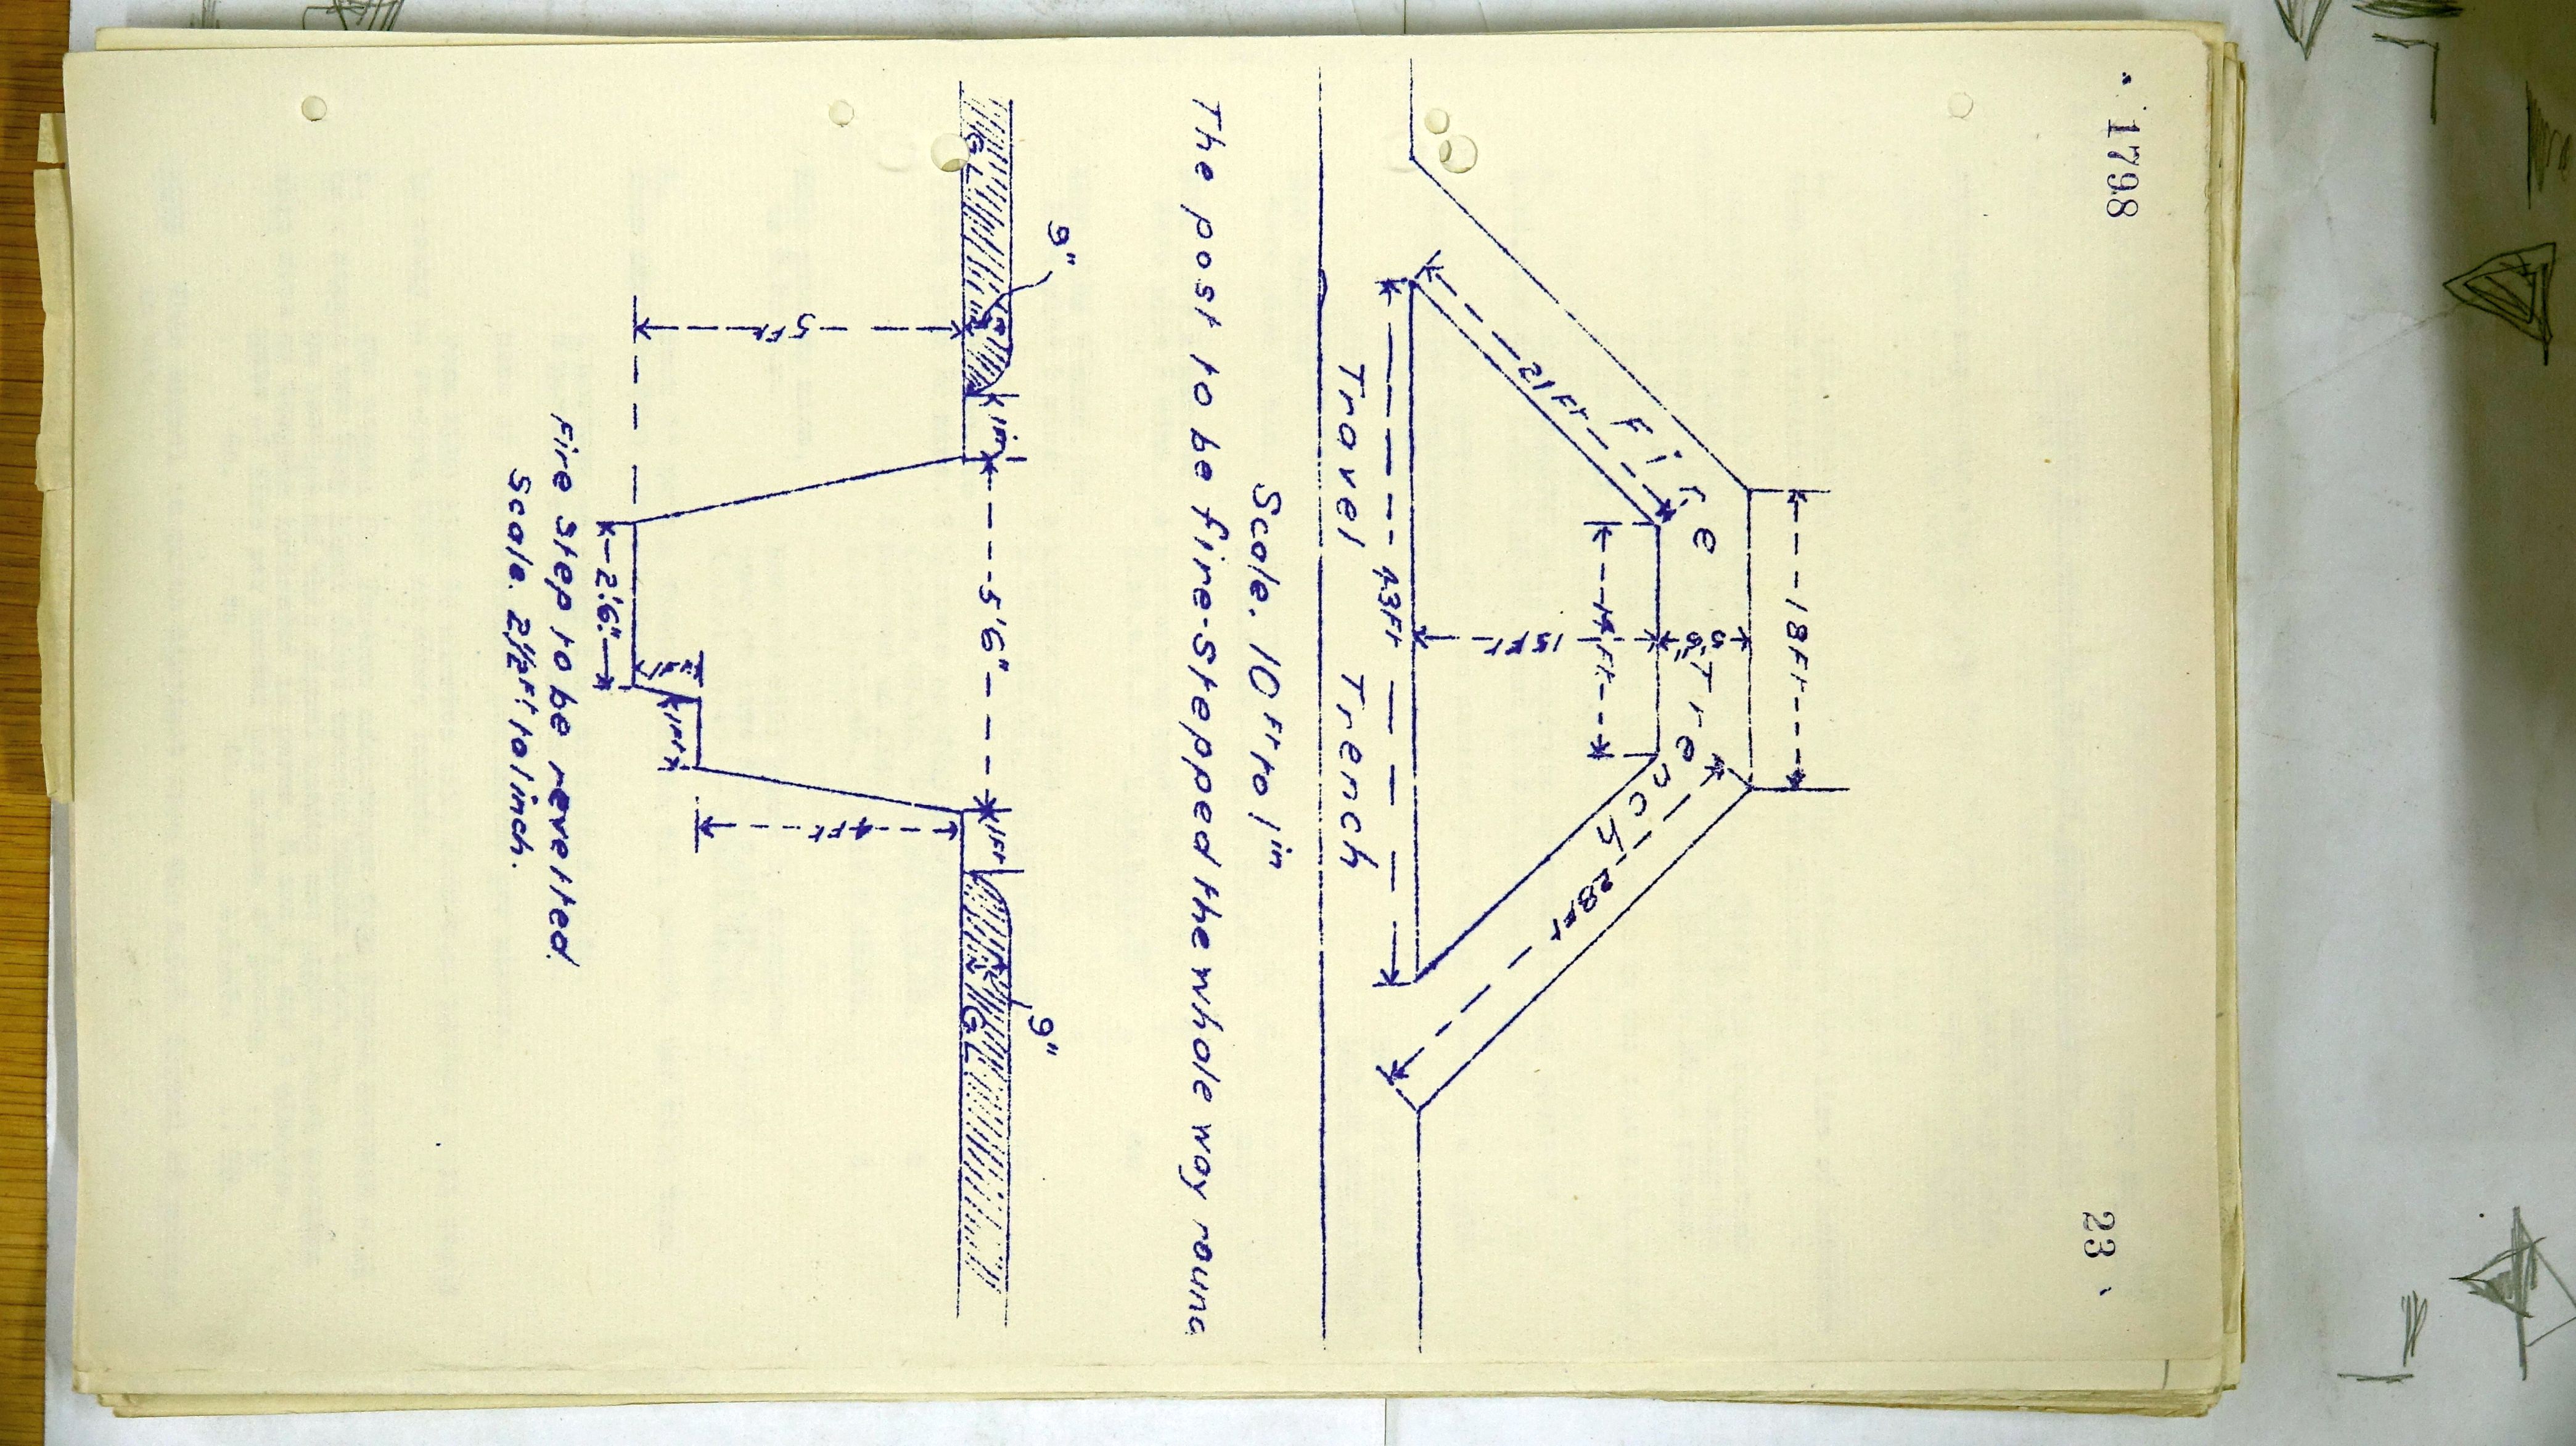 1798
23
18Ft
Fire Trench
5'6"
21Ft
14Ft
28Ft
15Ft
43Ft
Travel Trench
Scale. 10Ft to 1in
The post to be fire-stepped the whole way round
9"
9"
GL
1Ft
5'6"
1Ft
GL
5Ft
4Ft
1Ft
1Ft
2'.6"
Fire Step to be revetted.
Scale. 2½Ft to 1 inch.